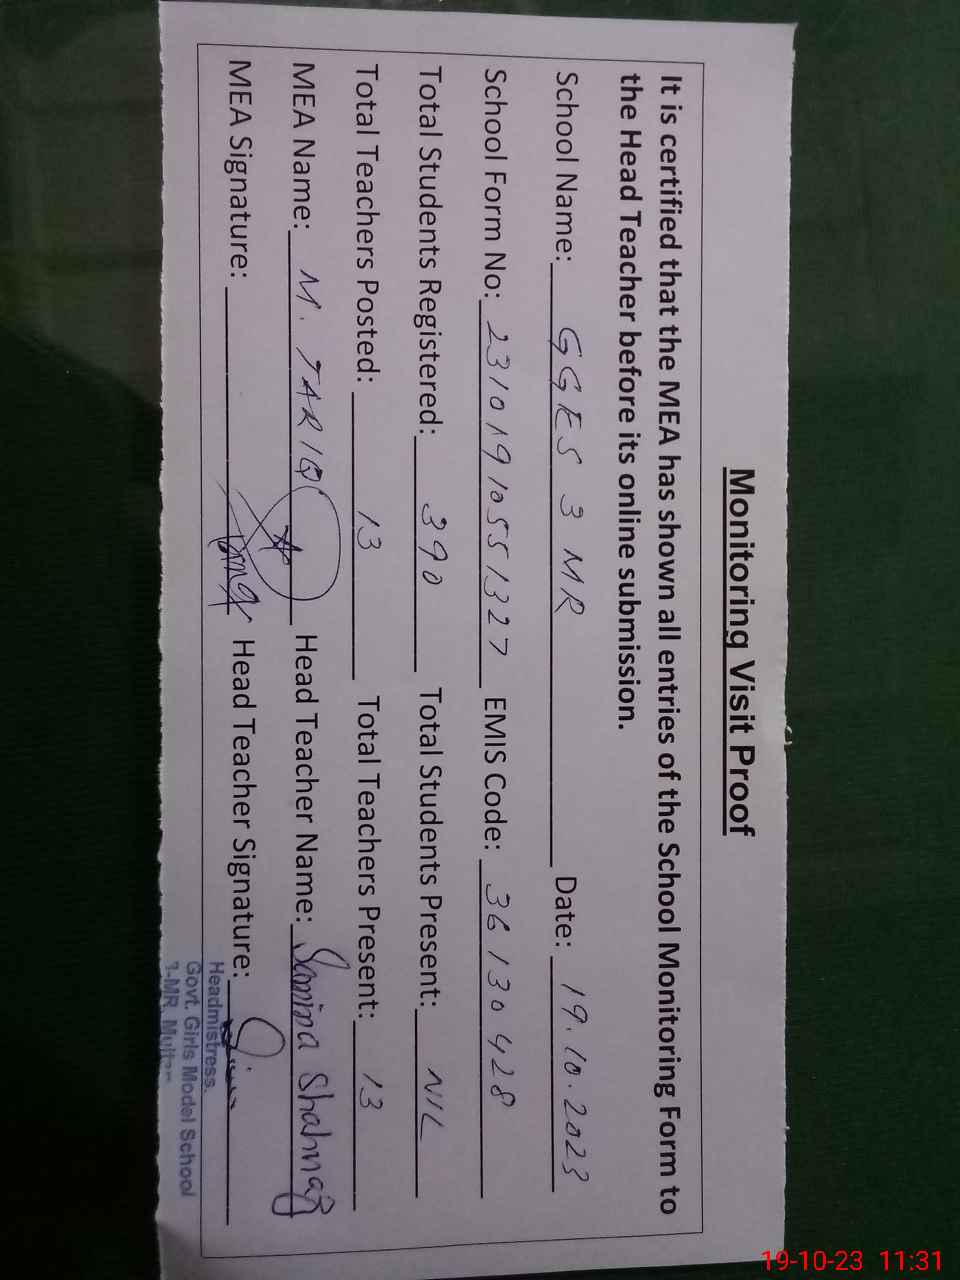 Monitoring Visit Proof
It is certified that the MEA has shown all entries of the School Monitoring Form to
the Head Teacher before its online submission.
School Name: GGES 3 MR Date: 19.10.2023
School Form No: 23101910551327 EMIS Code: 36130428
Total Students Registered: 390 Total Students Present: NIL
Total Teachers Posted: 13 Total Teachers Present: 13
MEA Name: M. TARIQ Head Teacher Name: Samina Shahnaz
MEA Signature: Head Teacher Signature:
Headmistress.
Govt. Girls Model School
3-MR, Multan
19-10-23 11:31